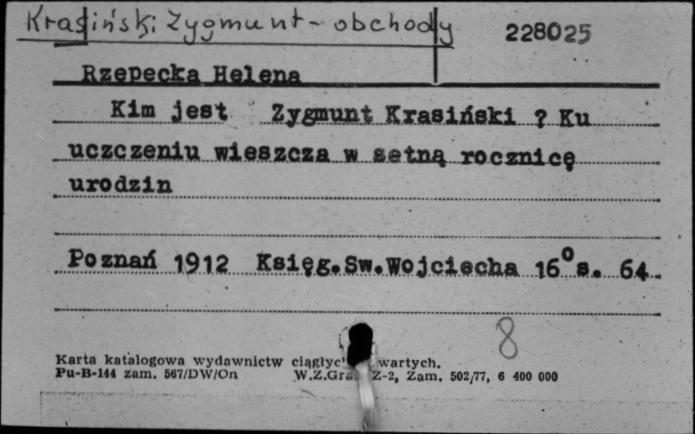 Krasiński Zygmunt - obchody
228025
Rzepecka Helena
Kim jest Zygmunt Krasiński ? Ku
uczczeniu wieszcza w setną rocznicę
urodzin
Poznań 1912 Księg.Sw.Wojciecha 16° s. 64
8
Karta katalogowa wydawnictw wartych.
Pu-B-144 zam. 567/DW/On W.Z.Gra Z-2, Zam. 502/77, 6 400 000